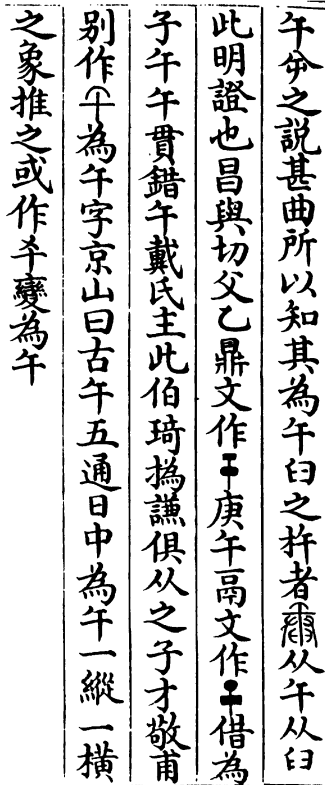 午之説甚曲所以知其為午臼之杵者从午从臼
此明證也昌與切父乙鼎文作庚午鬲文作借為
子午午貫錯午戴氏主此伯琦撝謙俱从之子才敬甫
别作為午字京山曰古午五通日中為午一縱一橫
之象推之或作變為午